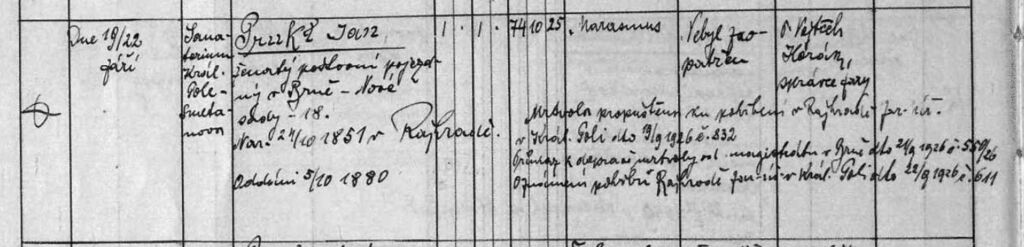 Dne 19/22
září
Sana-
torium
Král.
Pole-
Smeta-
nova
Prukl Jan
ženatý poštovní pojezd-
ný v Brně - Nové
sady - 18.
Nar. 24/10 1851 v Rajhradě.
Oddavší 5/10 1880
1 . 1 .
74 10 25
Marasmus
Nebyl zao-
patřen
P. Vojtěch
Horám,
správce fary
Mrtvola propuštěna ku pohřbení v Rajhradě far. úř.
v Král. Poli dto 19/9 1926 č. 332
Průkaz k dopravě mrtvoly od magistrátu v Brně dto 21/9 1926
Oznámení pohřbu Rajhradě far. úř. v Král. Poli dto 22/9 1926 č. 611